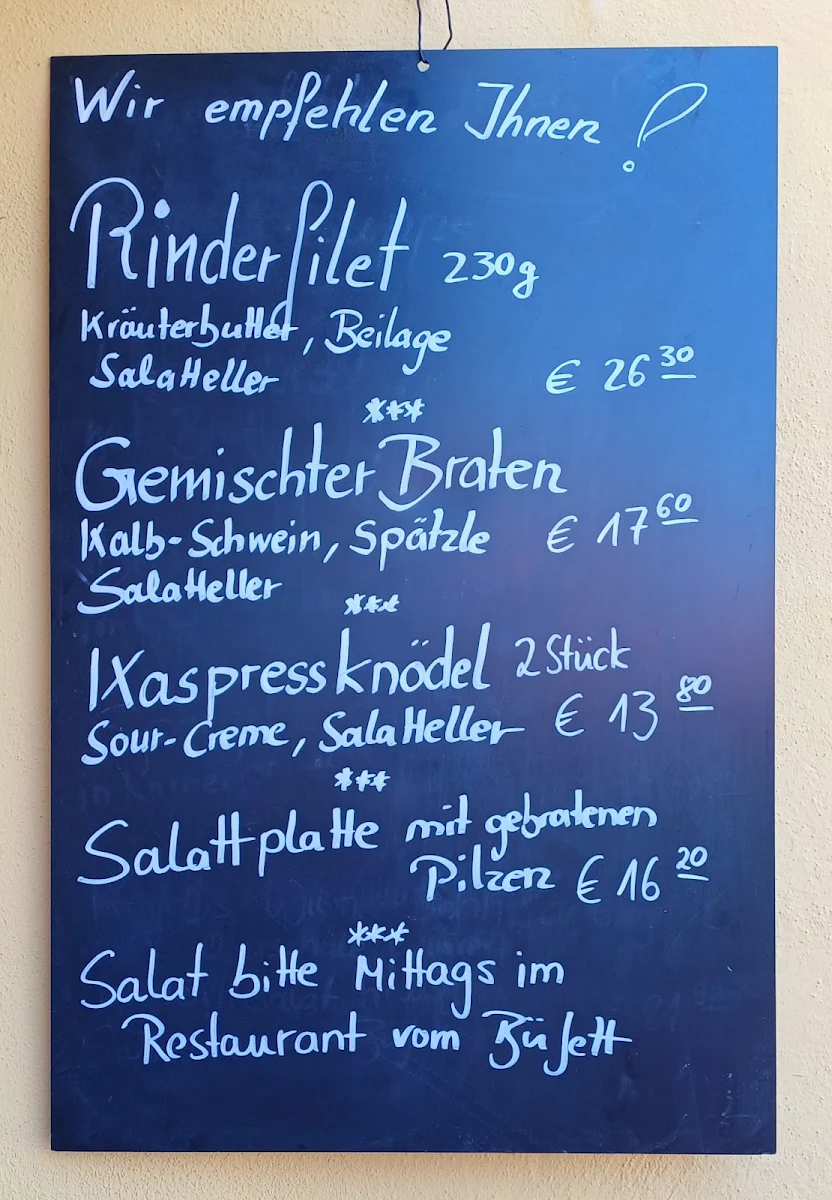 Wir empfehlen Ihnen!
Rinderfilet 230g
Kräuterbutter, Beilage
Salatteller € 26 30
***
Gemischter Braten
Kalb-Schwein, Spätzle € 17 60
Salatteller
***
Kaspressknödel 2 Stück
Sour-Creme, Salatteller € 13 80
***
Salattplatte mit gebratenen
Pilzen € 16 20
***
Salat bitte Mittags im
Restaurant vom Büfett